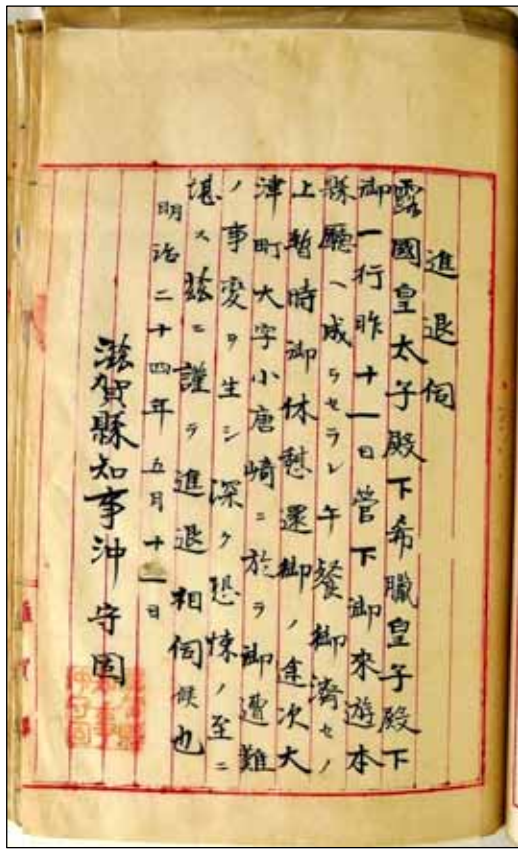 進退伺
露國皇太子殿下希臘皇子殿下
御一行昨十一日管下御來遊本
縣廳ヘ成ラセラレ午餐御濟セノ
上暫時御休憩還御ノ途次大
津町大字小唐崎ニ於テ御遭難
ノ事変ヲ生シ深ク恐悚ノ至ニ
堪ス茲ニ謹テ進退相伺候也
明治二十四年五月十二日
滋賀縣知事沖守固